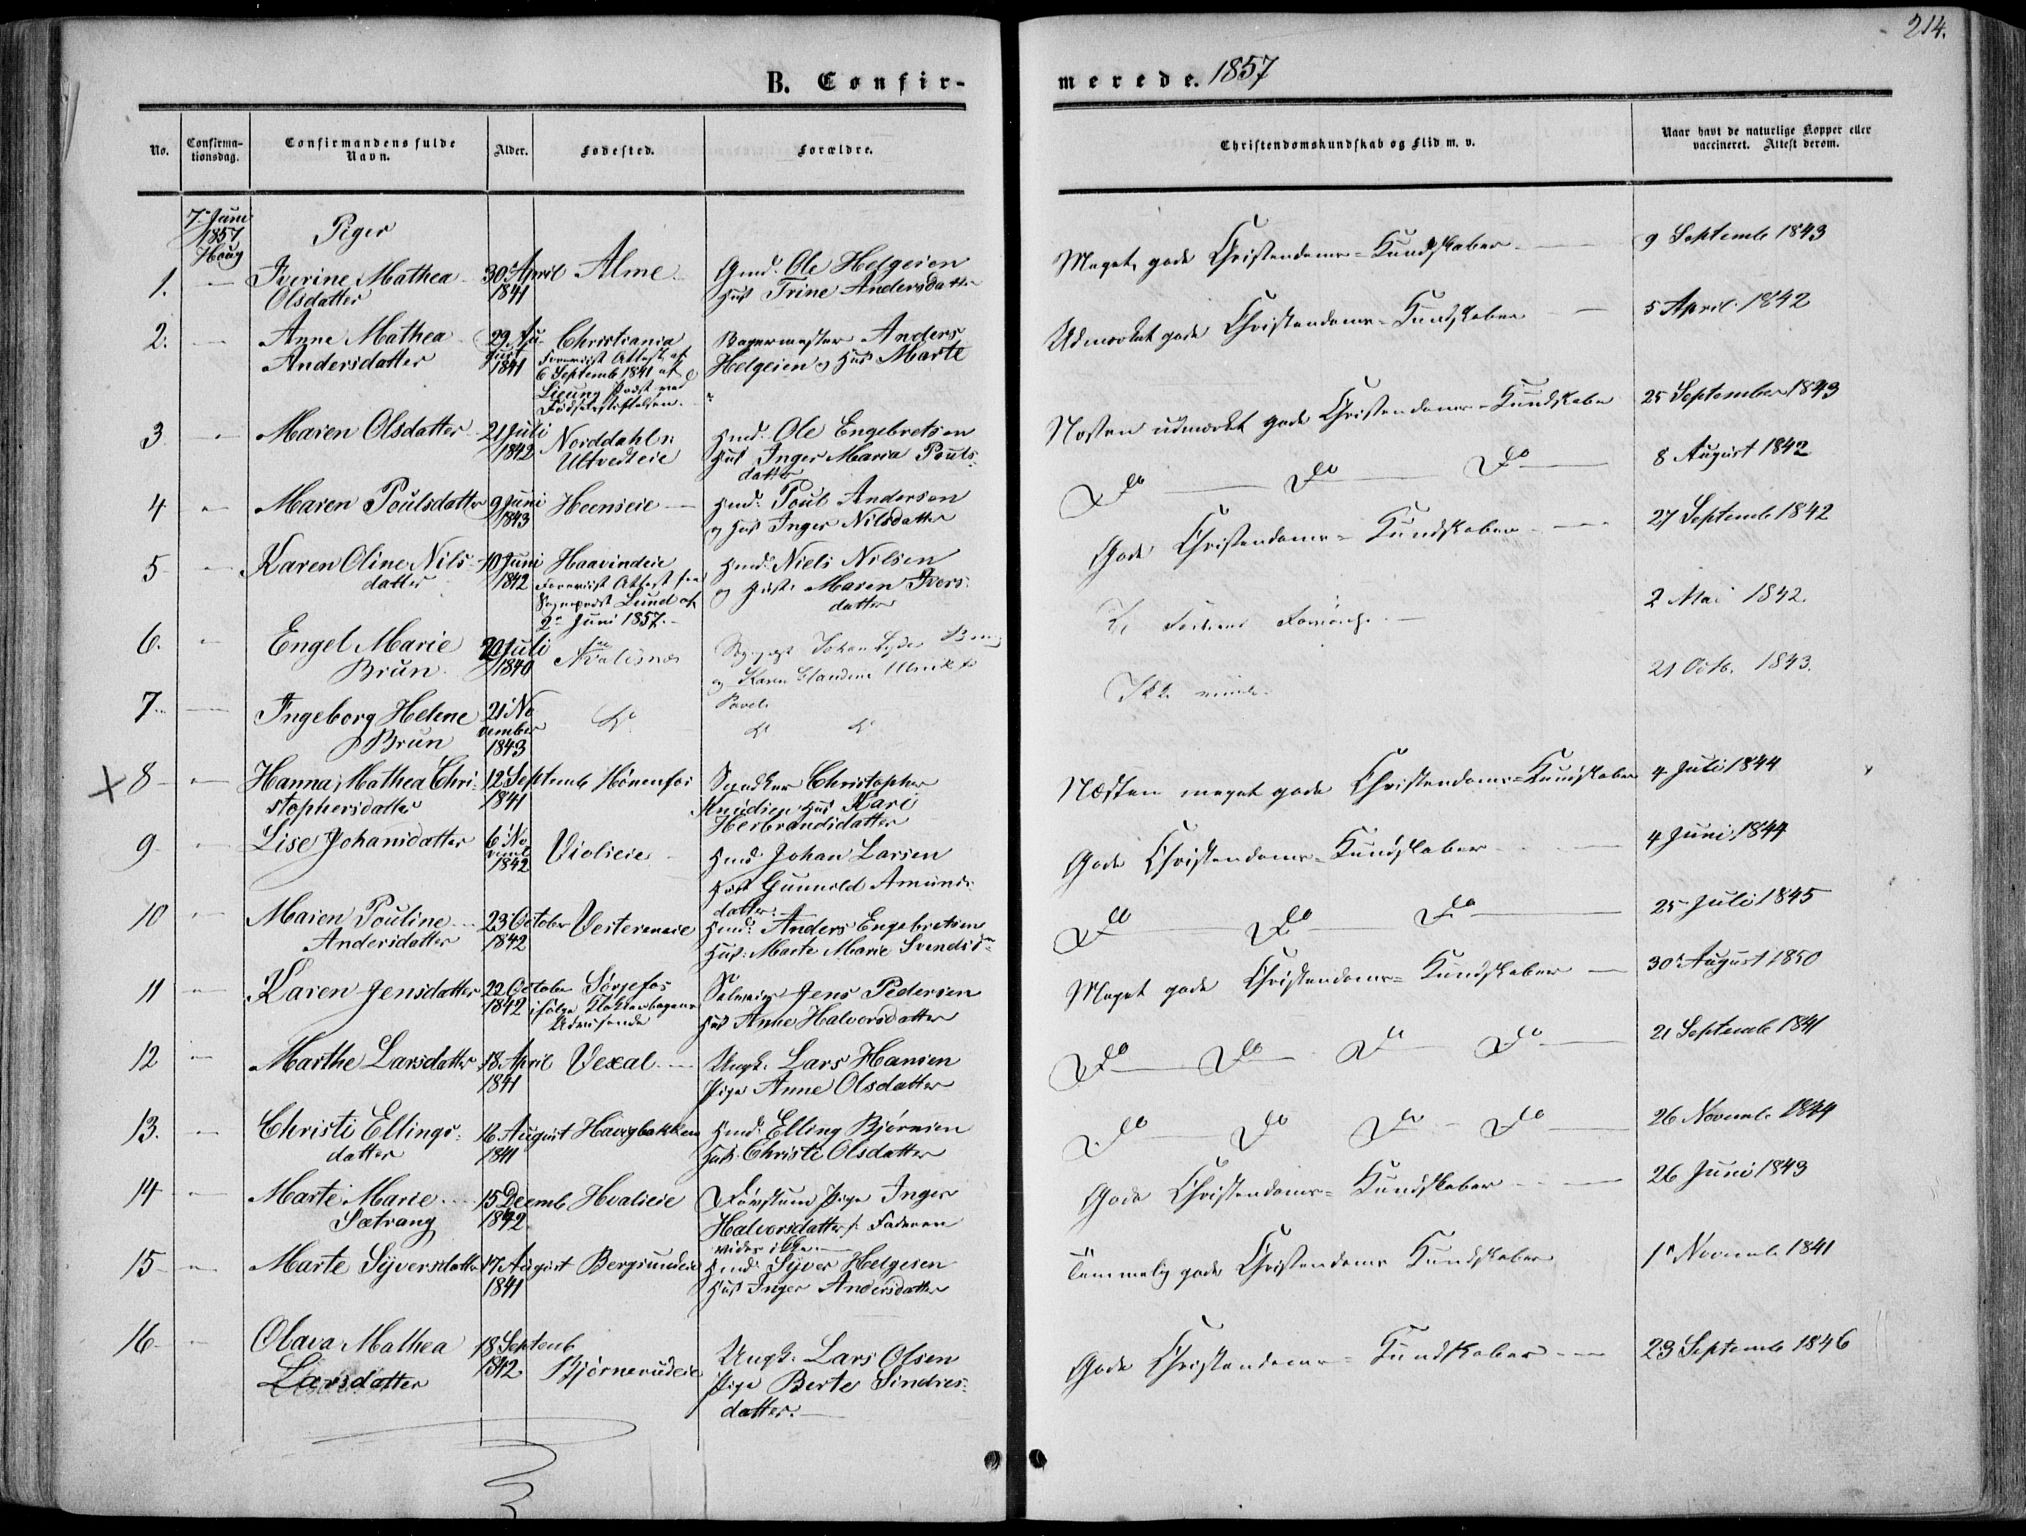 214.
B. Confir-
merede. 1857
No.
Confirma-
tionsdag.
Confirmandens fulde
Navn.
Alder.
Fødested.
Forældre.
Christendomskundskab og Flid m. v.
Naar havt de naturlige Kopper eller
vaccineret. Attest derom.
7 Juni
1857
Houg
Piger
1. Iverine Mathea 30 April Alme Gmd. Ole Helgesen
Olsdatter 1841 Hust Trine Andersdatter
Meget gode Christendoms-Kundskaber 9 Septemb 1843
2. Anne Mathea 29 Au- Christiania Bagermester Anders
Andersdatter gust Foreviist Attest af Helgesen og Hust Marte
1841 6 Septemb 1841 af
Provst med
Fødselsstiftelsen.
Udmærket gode Christendoms-Kundskaber 5 April 1842
3 Maren Olsdatter 21 Juli Norddahl Hmd. Ole Engebretsen
1842 Ultvedteie Hust Inger Maria Pouls-
datter
Næsten udmærket gode Christendoms-Kundskaber 25 September 1843
4 Maren Poulsdatter 9 Juni Hoenseie Hmd. Poul Andersen
1843 og Hust Inger Nilsdatter
Do Do Do 8 August 1842
5 Karen Oline Nils- 10 Juni Haavindeie Hmd. Niels Nilsen
datter 1842 Foreviist Attest fra og Hust. Maren Ivers-
Sogneprest Lund af datter
2 Juni 1857.
Gode Christendoms-Kundskaber 27 Septemb 1842
6. Engel Marie 20 Juli Johan
Brun 1840 og Karen
2 Mai 1842.
7 Ingeborg Helene 21 No Do Do Do
Brun vember
1843
21 Octb. 1843.
8 Hanna Mathea Chri- 12 Septemb Hønenfos Snedker Christopher
stophersdatter 1841 Knudsen Hust Kari
Herbrandsdatter
Næsten meget gode Christendoms-Kundskaber 4 Juli 1844
9 Lise Johansdatter 6 No Violieie Hmd Johan Larsen
vemb Hust Gunnild Amunds-
1842 datter
Gode Christendoms-Kundskaber 4 Juni 1844
10 Maren Pouline 23 October Vesterneie Hmd. Anders Engebretsen
Andersdatter 1842 Hust. Marte Marie Svendsd
Do Do Do 25 Juli 1845
11 Karen Jensdatter 22 October Sørgefos Jens Pedersen
1842 ifølge Klokkerbogens Hust Anne Halvorsdatter
Udvisende
Meget gode Christendoms-Kundskaber 30 August 1850
12 Marthe Larsdatter 18 April Vexal Ungk. Lars Hansen
1841 Pige Anne Olsdatter
Do Do Do Do 21 Septemb 1841
13. Christi Ellings- 16 August Haugbakken Hmd. Elling Bjørnsen
datter 1841 Hust. Christi Olsdatter
Do Do Do Do 26 Novemb. 1844
14 Marte Marie 15 Decemb Hvalseie Pige Inger
Sætrang 1842 Halvorsdatter Faderen
vides ikke
Gode Christendoms-Kundskaber 26 Juni 1843
15 Marte Syversdatter 17 August Bergsundeie Hmd Syver Helgesen
1841 Hust Inger Andersdatter
Temmelig gode Christendoms Kundskaber 1 Novemb. 1841
16 Olava Mathea 18 Septemb Ungk. Lars Olsen
Larsdatter 1842 Bjørnerudeie Pige Berte Sindres-
datter.
Gode Christendoms-Kundskaber 23 Septemb 1846